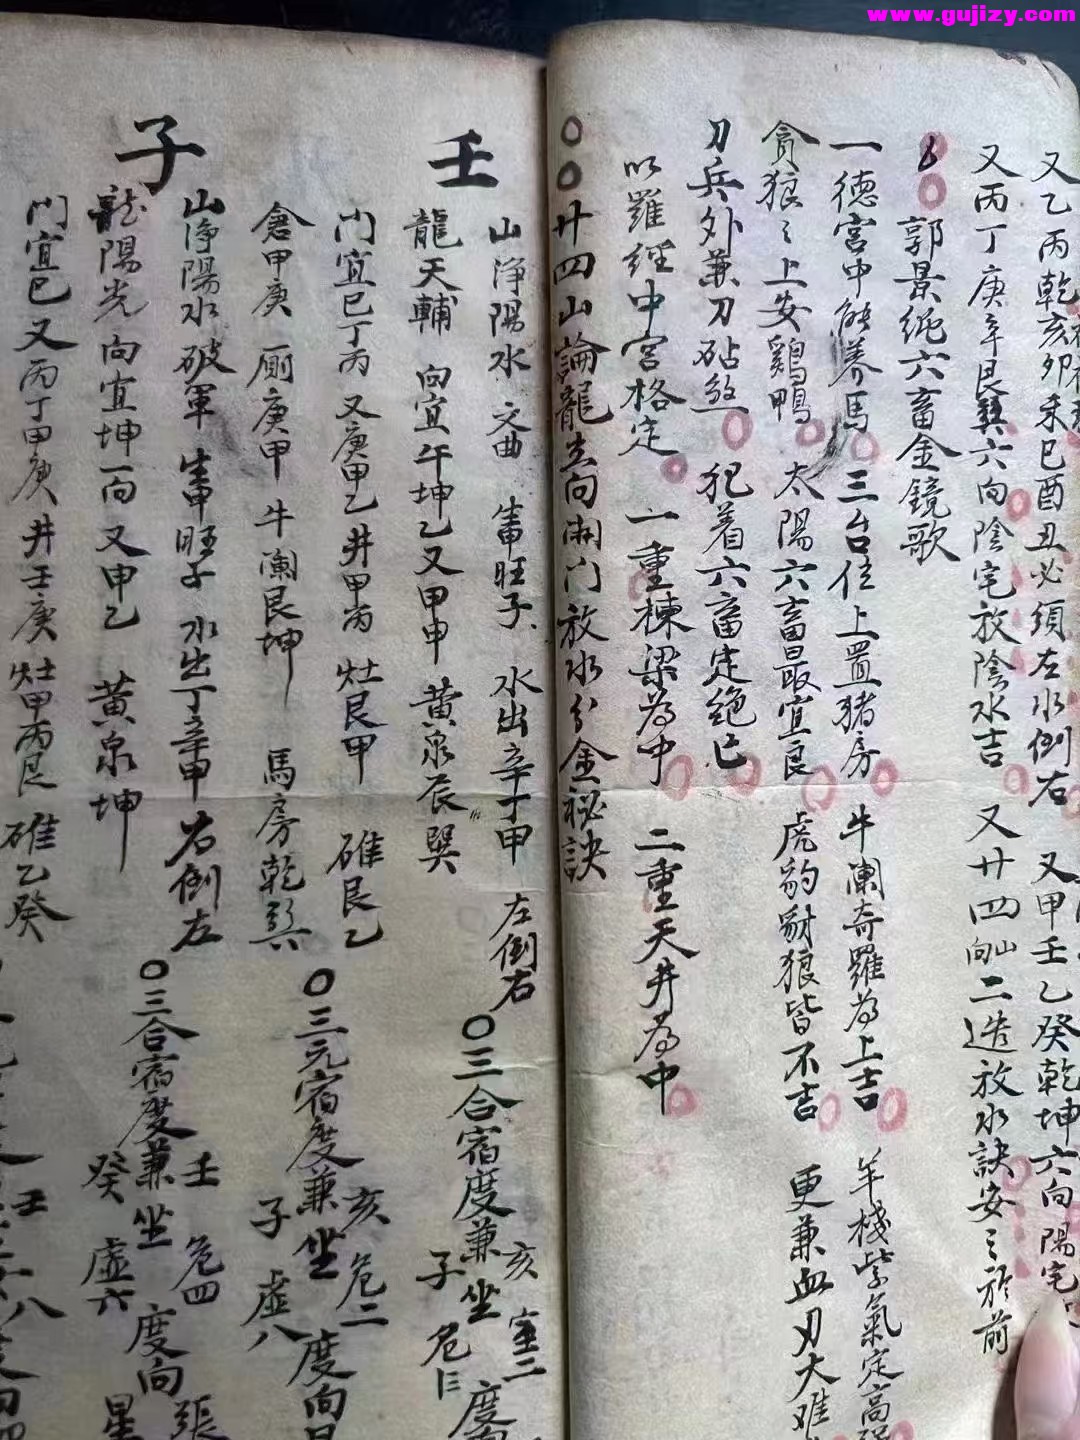 www.gujizy.com
又乙丙乾亥卯未巳酉丑必須左水倒右 又甲壬乙癸乾坤六向陽宅
又丙丁庚辛艮巽六向陰宅放陰水吉 又廿四山向二造放水訣安之於前
郭景純六畜金鏡歌
一德宮中能养馬 三台位上置猪房 牛阑奇羅為上吉 羊棧紫氣定高
貪狼之上安鷄鴨 太陽六畜最宜良 虎豹豺狼皆不吉 更兼血刃大难
刀兵外兼刀砧煞 犯着六畜定絕亡
以羅經中宮格定 一重棟梁為中 二重天井為中
廿四山論龍立向開門放水分金秘訣
壬
山淨陽水 文曲 生申旺子 水出辛丁甲 左倒右 三合宿度兼亥子坐室二危 度
龍天輔 向宜午坤乙又甲申 黄泉辰巽
门宜巳丁丙又庚甲乙井甲丙 灶艮甲 碓艮乙 三元宿度兼亥子坐危二虛八度向
倉甲庚 厠庚甲 牛阑艮坤 馬房乾巽
子
山淨陽水破軍 生申旺子 水出丁辛甲 右倒左 三合宿度兼壬癸坐危四虛六度向張星
龍陽光 向宜坤丙又申乙 黄泉坤
门宜巳又丙丁甲庚井壬庚灶甲丙艮 碓乙癸